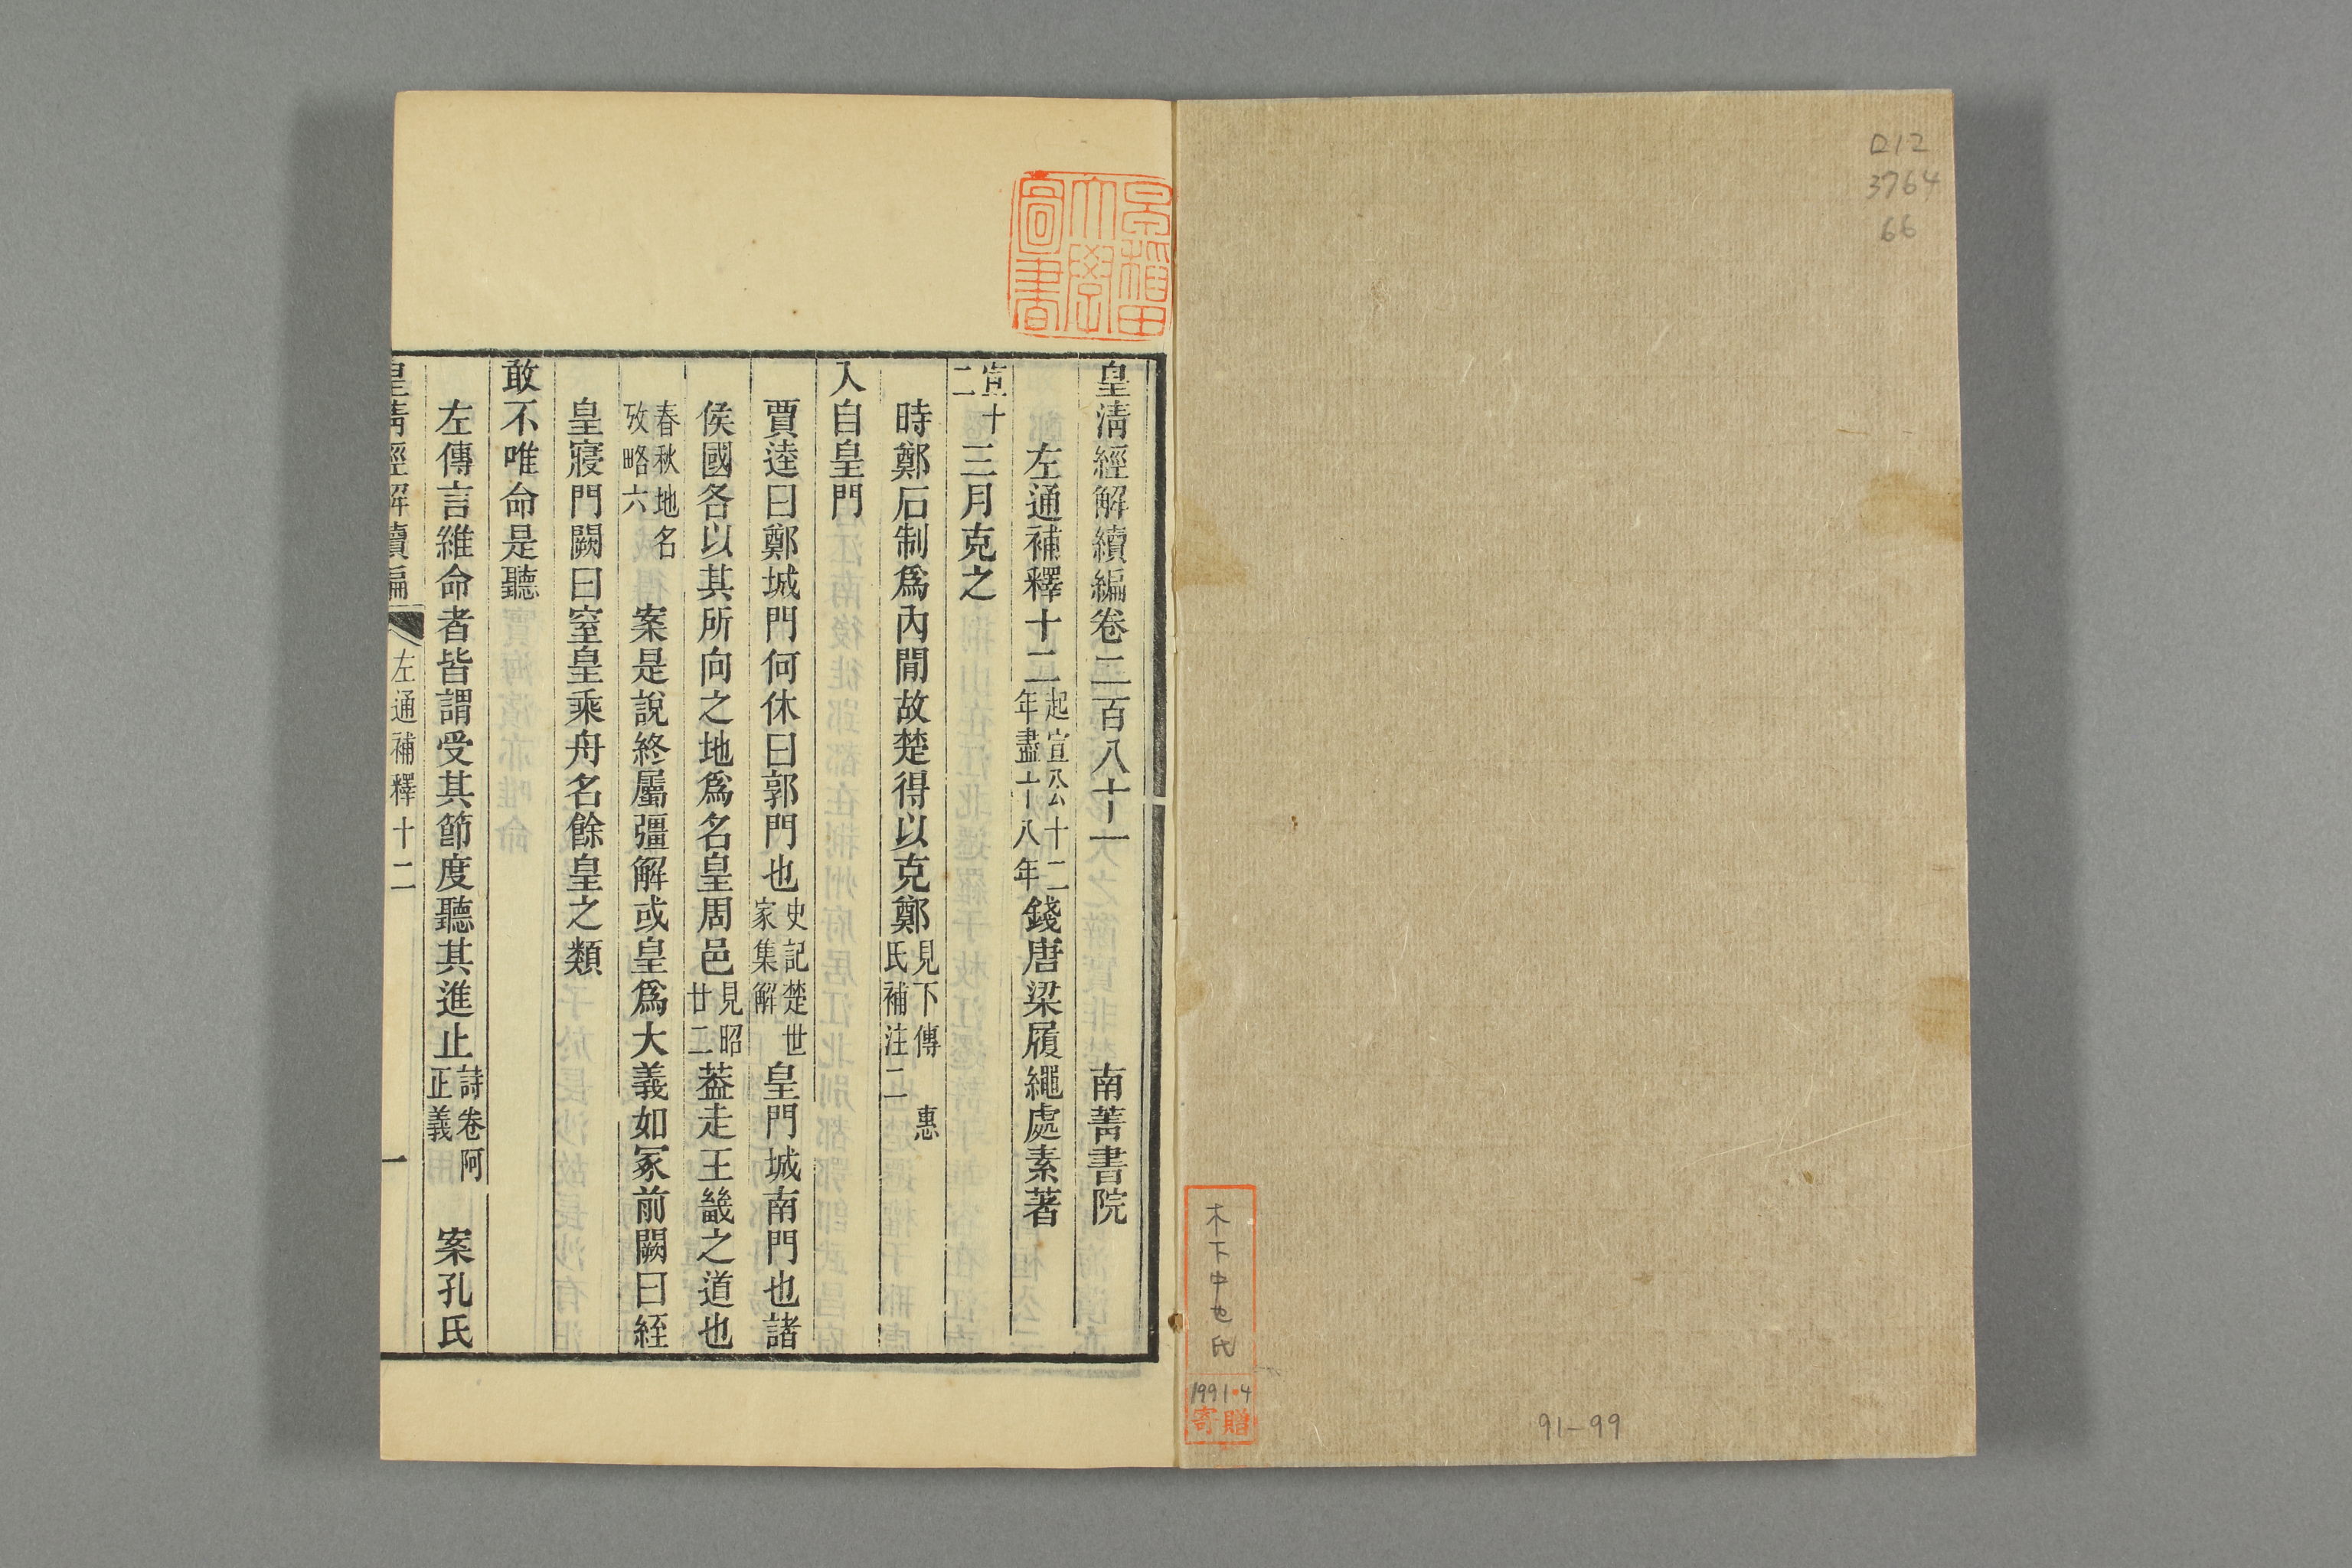 D12
3764
66
木下中也氏
1991・4
寄贈
91-99
早稲田
大學
圖書
皇清經解續編卷二百八十一 南菁書院
左通補釋十二起宣公十二年盡十八年錢唐梁履繩處素著
宣十二三月克之
時鄭石制爲內閒故楚得以克鄭見下傳 惠氏補注二
入自皇門
賈逵曰鄭城門何休曰郭門也史記楚世家集解皇門城南門也諸
侯國各以其所向之地爲名皇周邑見昭廿二葢走王畿之道也
春秋地名攷略六 案是說終屬彊解或皇爲大義如冢前闕曰絰
皇寢門闕曰窒皇乘舟名餘皇之類
敢不唯命是聽
左傳言維命者皆謂受其節度聽其進止詩卷阿正義 案孔氏
皇清經解續編 左通補釋十二 一